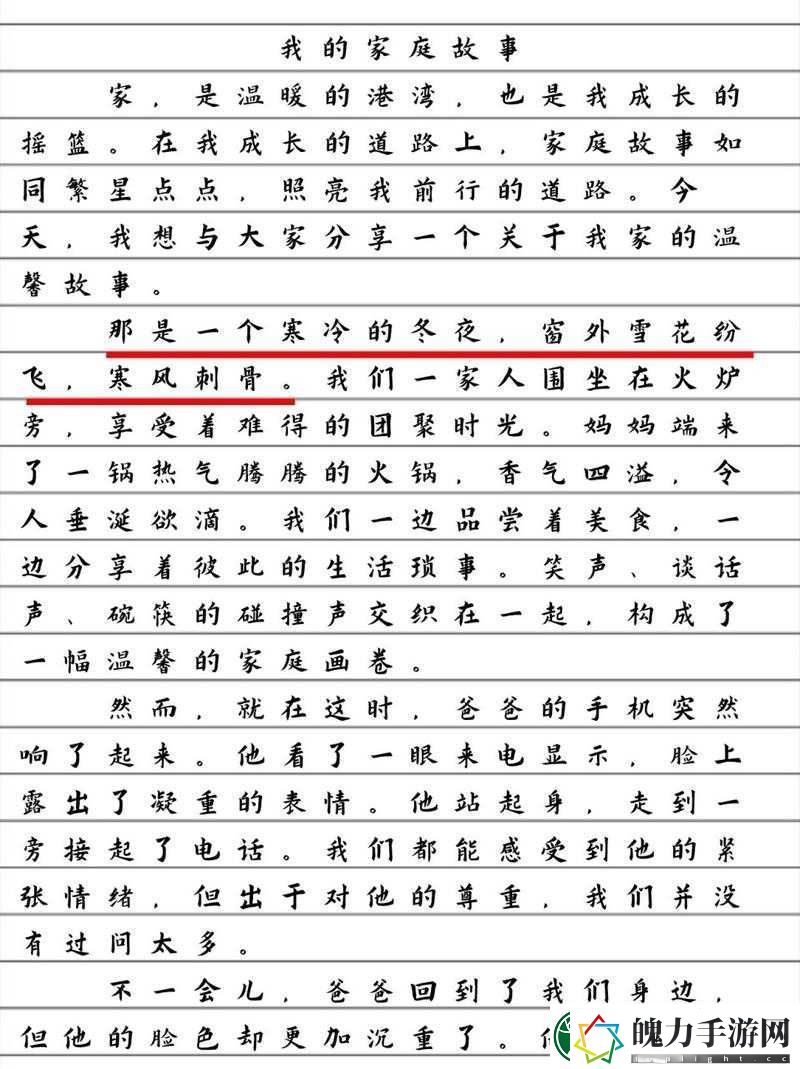 我的家庭故事
家，是温暖的港湾，也是我成长的
摇篮。在我成长的道路上，家庭故事如
同繁星点点，照亮我前行的道路。今
天，我想与大家分享一个关于我家的温
馨故事。
那是一个寒冷的冬夜，窗外雪花纷
飞，寒风刺骨。我们一家人围坐在火炉
旁，享受着难得的团聚时光。妈妈端来
了一锅热气腾腾的火锅，香气四溢，令
人垂涎欲滴。我们一边品尝着美食，一
边分享着彼此的生活琐事。笑声、谈话
声、碗筷的碰撞声交织在一起，构成了
一幅温馨的家庭画卷。
然而，就在这时，爸爸的手机突然
响了起来。他看了一眼来电显示，脸上
露出了凝重的表情。他站起身，走到一
旁接起了电话。我们都能感受到他的紧
张情绪，但出于对他的尊重，我们并没
有过问太多。
不一会儿，爸爸回到了我们身边，
但他的脸色却更加沉重了。
魄力手游网